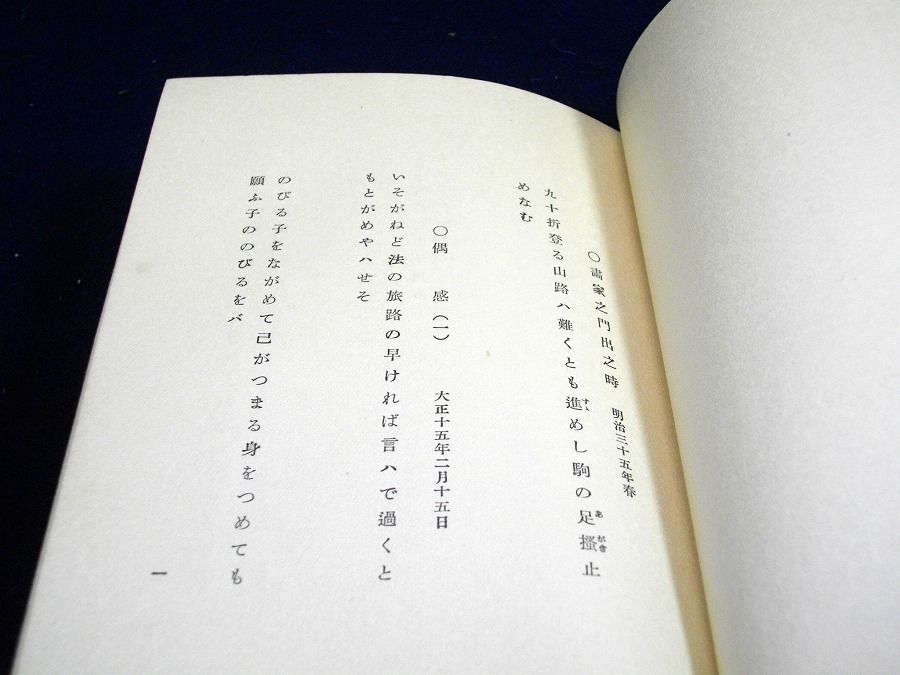 〇畵家之門出之時 明治三十五年春
九十折登る山路ハ難くとも進めし駒の足搔止
めなむ
〇偶感(一) 大正十五年二月十五日
いそがねど法の旅路の早ければ言ハで過くと
もとがめやハせそ
のびる子をながめて己がつまる身をつめても
願ふ子ののびるをバ
一